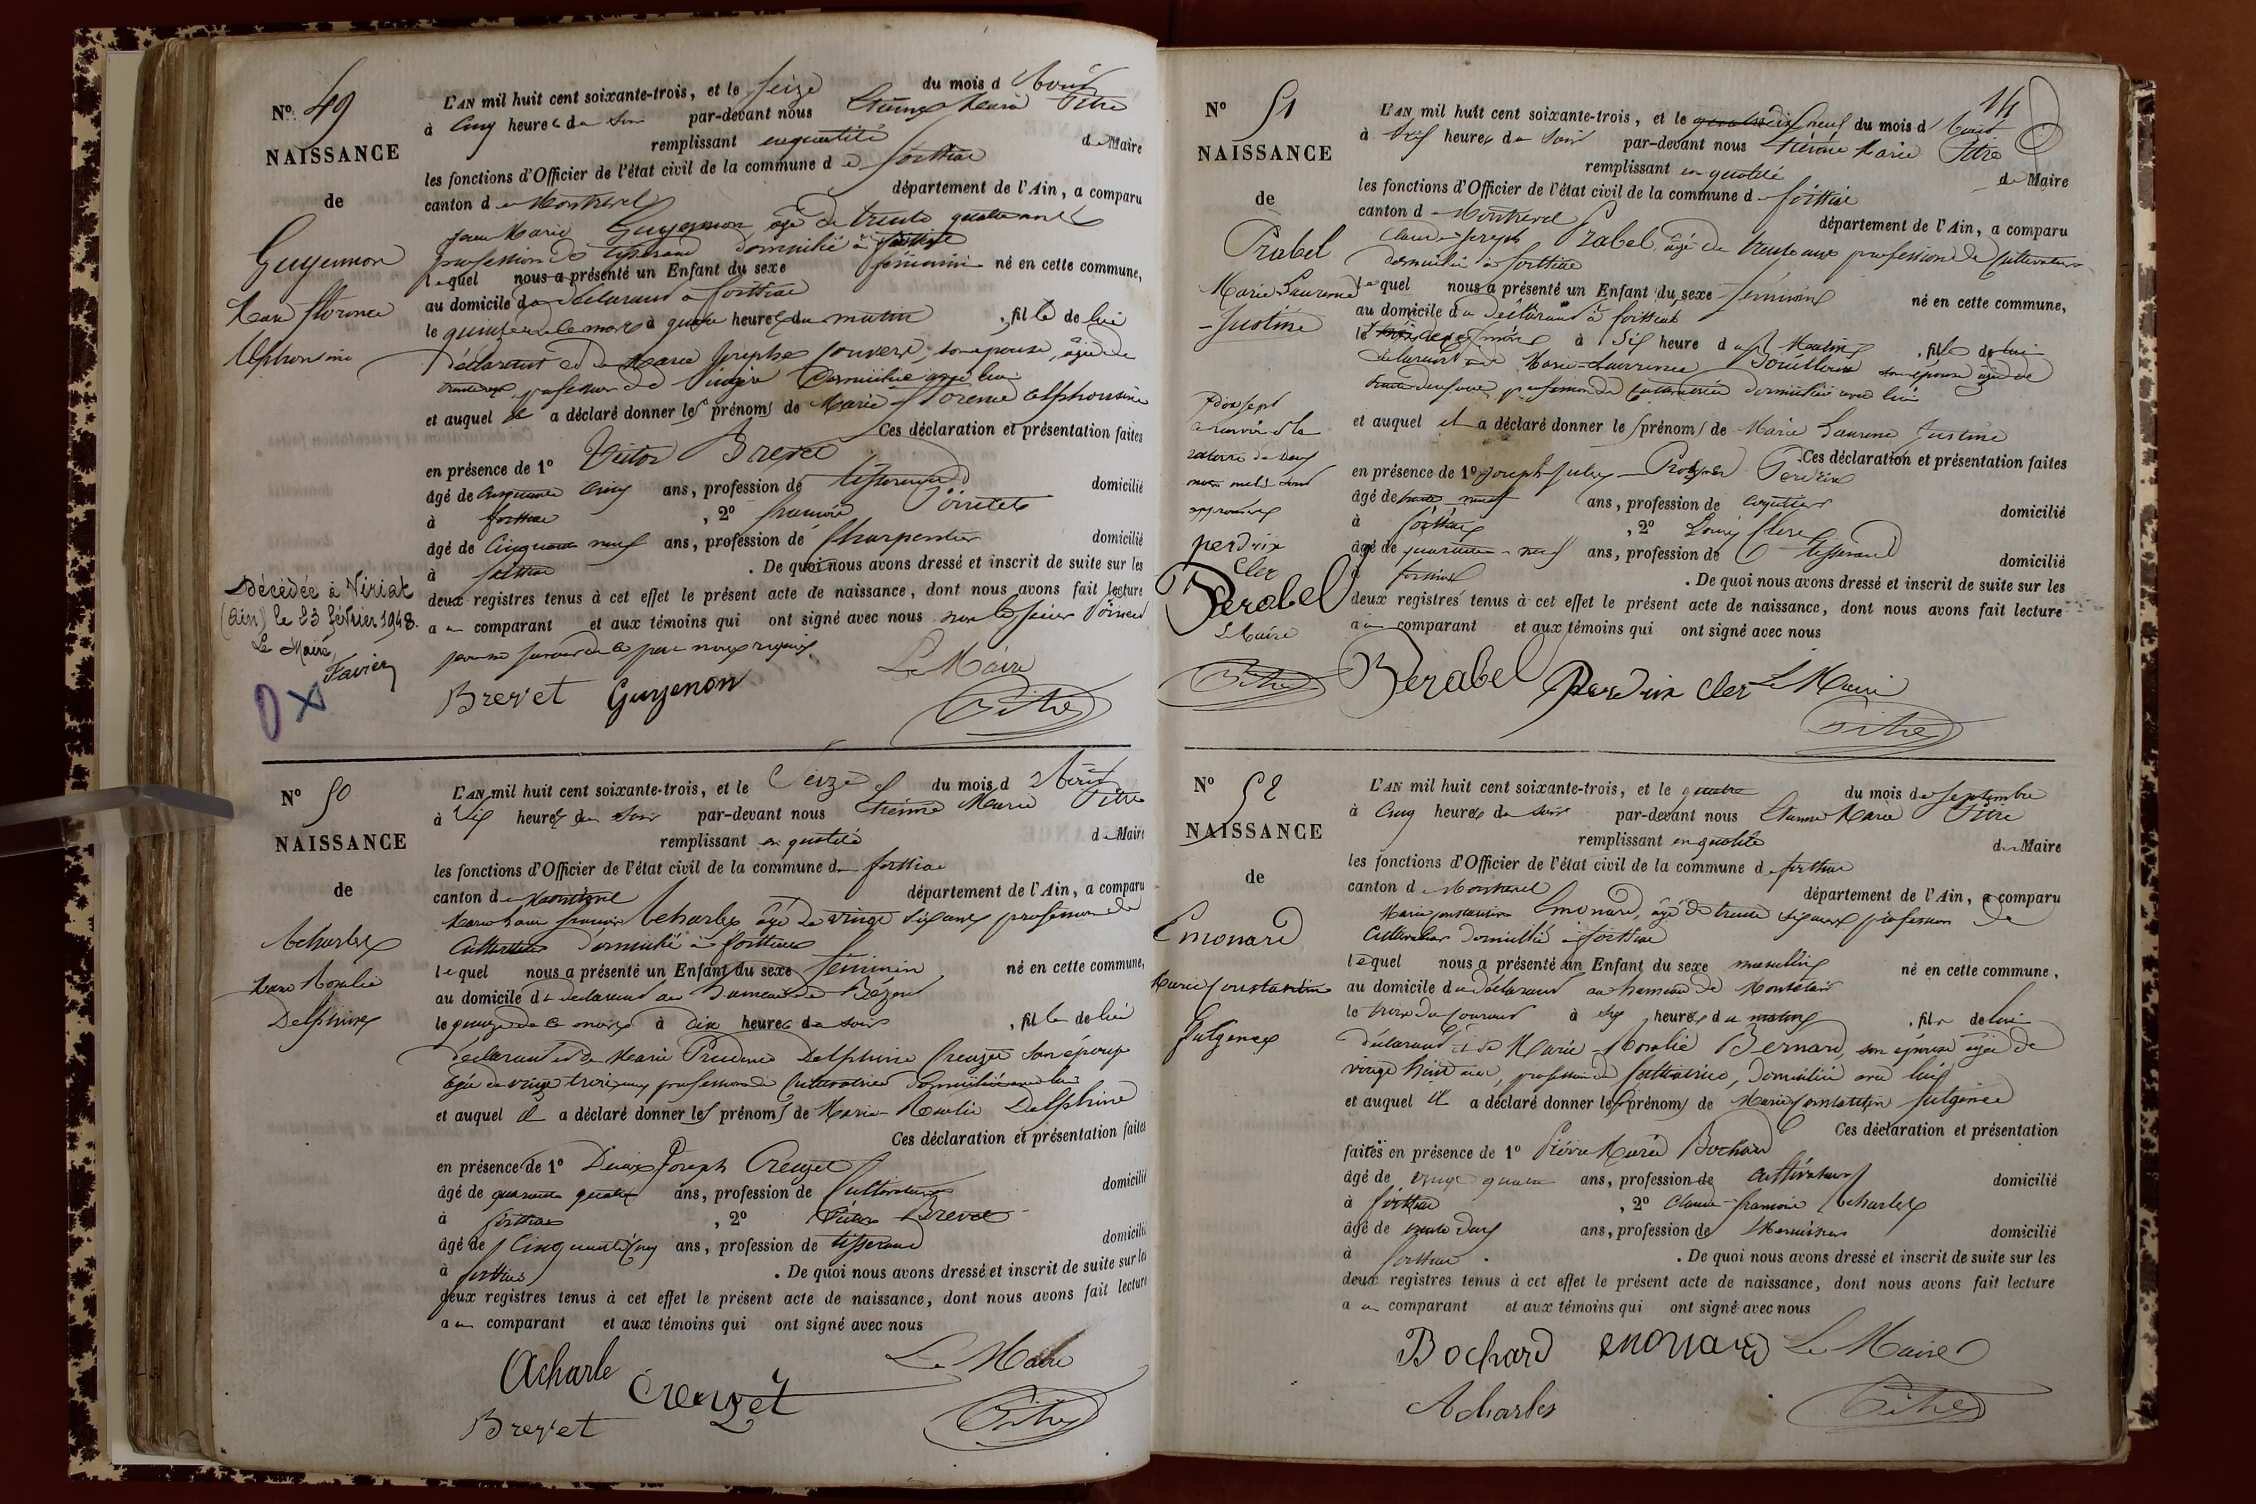 Nº 49
NAISSANCE
de
Guyennon
Marie florence
Alphonsine
L'AN mil huit cent soixante-trois, et le seize du mois d Août
à Cinq heures du soir par-devant nous Etienne Marie Pitre
remplissant en qualité de Maire
les fonctions d'Officier de l'état civil de la commune de foissiat
canton de Montrevel département de l'Ain, a comparu
Jean Marie Guyennon âgé de trente quatre ans
profession de tisserand domicilié à foissiat
lequel nous a présenté un Enfant du sexe féminin né en cette commune,
au domicile du déclarant à foissiat
le quinze de ce mois à quatre heures du matin, fille de lui
déclarant et de Marie Josephe son épouse, âgée de
profession de domiciliée avec lui
et auquel il a déclaré donner les prénoms de Marie florence alphonsine
Ces déclaration et présentation faites
en présence de 1º Victor Brevet
âgé de cinquante cinq ans, profession de tisserand domicilié
à foissiat, 2º françois
âgé de Cinquante neuf ans, profession de Charpentier domicilié
à foissiat. De quoi nous avons dressé et inscrit de suite sur les
deux registres tenus à cet effet le présent acte de naissance, dont nous avons fait lecture
au comparant et aux témoins qui ont signé avec nous
Le Maire
Brevet Guyenon Pitre
Décédée à Viriat
(Ain) le 23 février 1948.
Le Maire,
Favier
Nº 50
NAISSANCE
de
Acharles
Marie Rosalie
Delphine
L'AN mil huit cent soixante-trois, et le Seize du mois d Août
à Six heures du soir par-devant nous Etienne Marie Pitre
remplissant en qualité de Maire
les fonctions d'Officier de l'état civil de la commune de foissiat
canton de département de l'Ain, a comparu
françois Acharles âgé de vingt six ans profession de
Cultivateur domicilié à foissiat
lequel nous a présenté un Enfant du sexe féminin né en cette commune,
au domicile du déclarant au hameau de
le quinze de ce mois à dix heures du soir, fille de lui
déclarant et de Marie Delphine Creuzet son épouse
âgée de vingt trois ans profession de Cultivatrice domiciliée avec lui
et auquel il a déclaré donner les prénoms de Marie Rosalie Delphine
Ces déclaration et présentation faites
en présence de 1º Joseph Creuzet
âgé de quarante quatre ans, profession de Cultivateur domicilié
à foissiat, 2º Victor Brevet
âgé de Cinquante Cinq ans, profession de tisserand domicilié
à foissiat. De quoi nous avons dressé et inscrit de suite sur les
deux registres tenus à cet effet le présent acte de naissance, dont nous avons fait lecture
au comparant et aux témoins qui ont signé avec nous
Acharle Creuzet Le Maire
Brevet Pitre
14
Nº 51
NAISSANCE
de
Prabel
Marie Laurence
Justine
L'AN mil huit cent soixante-trois, et le dix neuf du mois d Août
à heures du soir par-devant nous Etienne Marie Pitre
remplissant en qualité de Maire
les fonctions d'Officier de l'état civil de la commune de foissiat
canton de Montrevel département de l'Ain, a comparu
Claude Joseph Prabel âgé de trente ans profession de Cultivateur
domicilié à foissiat
lequel nous a présenté un Enfant du sexe féminin né en cette commune,
au domicile du déclarant à foissiat
le à Six heures du Matin, fille de lui
déclarant et de Marie Laurence son épouse âgée de
profession de Cultivatrice domiciliée avec lui
et auquel il a déclaré donner les prénoms de Marie Laurence Justine
Ces déclaration et présentation faites
en présence de 1º Joseph Perdrix
âgé de neuf ans, profession de domicilié
à foissiat, 2º Louis Clerc
âgé de quarante neuf ans, profession de tisserand domicilié
à foissiat. De quoi nous avons dressé et inscrit de suite sur les
deux registres tenus à cet effet le présent acte de naissance, dont nous avons fait lecture
au comparant et aux témoins qui ont signé avec nous
approuvés
perdrix
Cler
Berabel
Le Maire
Pitre
Berabel Perdrix Cler Le Maire
Pitre
Nº 52
NAISSANCE
de
Emonard
Marie Constantin
fulgence
L'AN mil huit cent soixante-trois, et le quatre du mois de septembre
à Cinq heures du soir par-devant nous Etienne Marie Pitre
remplissant en qualité de Maire
les fonctions d'Officier de l'état civil de la commune de foissiat
canton de Montrevel département de l'Ain, a comparu
Marie Constantin Emonard, âgé de trente six ans profession de
Cultivateur domicilié à foissiat
lequel nous a présenté un Enfant du sexe masculin né en cette commune,
au domicile du déclarant au hameau de
le trois du courant à six heures du matin, fils de lui
déclarant et de Marie Rosalie Bernard, son épouse âgée de
vingt huit ans, profession de Cultivatrice, domiciliée avec lui
et auquel il a déclaré donner les prénoms de Marie Constantin fulgence
Ces déclaration et présentation
faites en présence de 1º Pierre Marie Bochard
âgé de vingt quatre ans, profession de cultivateur domicilié
à foissiat, 2º Claude françois Acharles
âgé de trente deux ans, profession de Menuisier domicilié
à foissiat. De quoi nous avons dressé et inscrit de suite sur les
deux registres tenus à cet effet le présent acte de naissance, dont nous avons fait lecture
au comparant et aux témoins qui ont signé avec nous
Bochard emonard Le Maire
Acharles Pitre